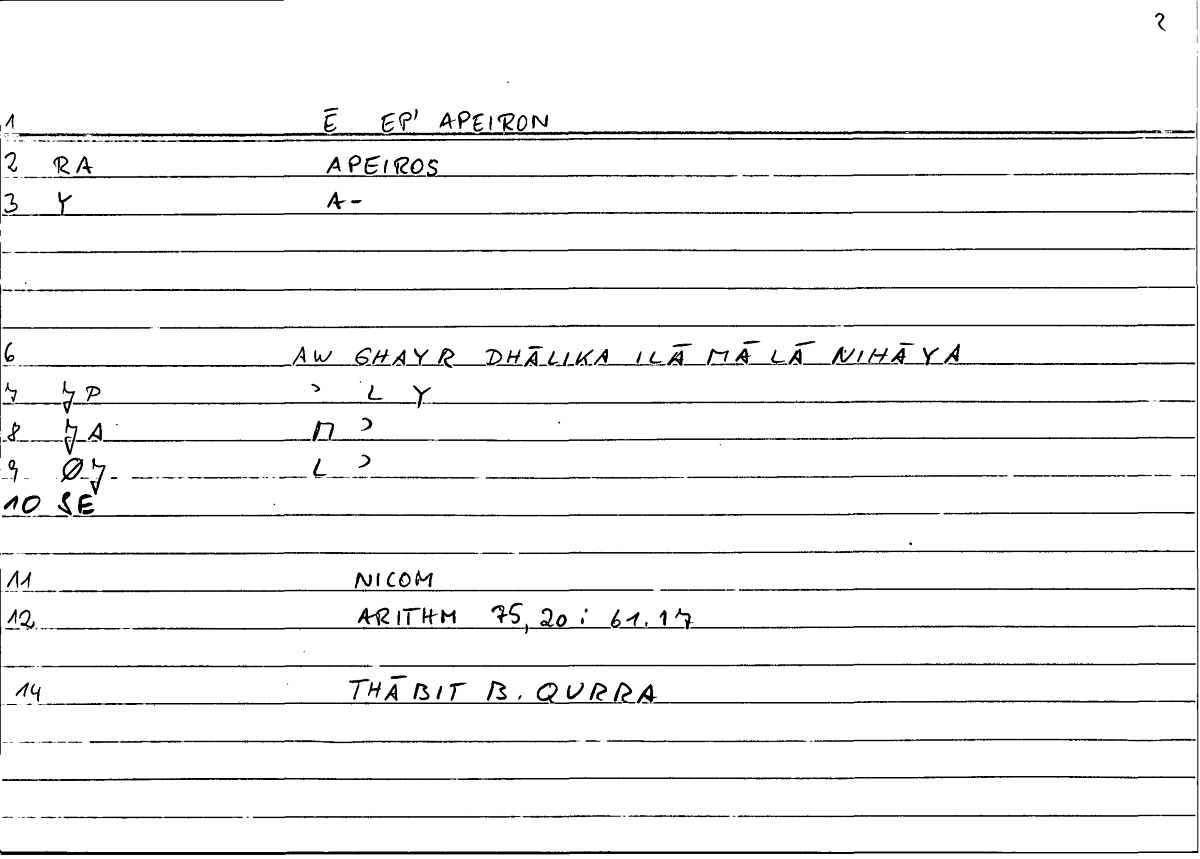 2
1 Ē EP' APEIRON
2 RA APEIROS
3 Y A-
6 AW GHAYR DHĀLIKA ILĀ MĀ LĀ NIHĀYA
7 P ʾ L Y
8 A M ʾ
9 Ø L ʾ
10 SE
11 NICOM
12 ARITHM 75,20 ; 61.17
14 THĀBIT B. QURRA